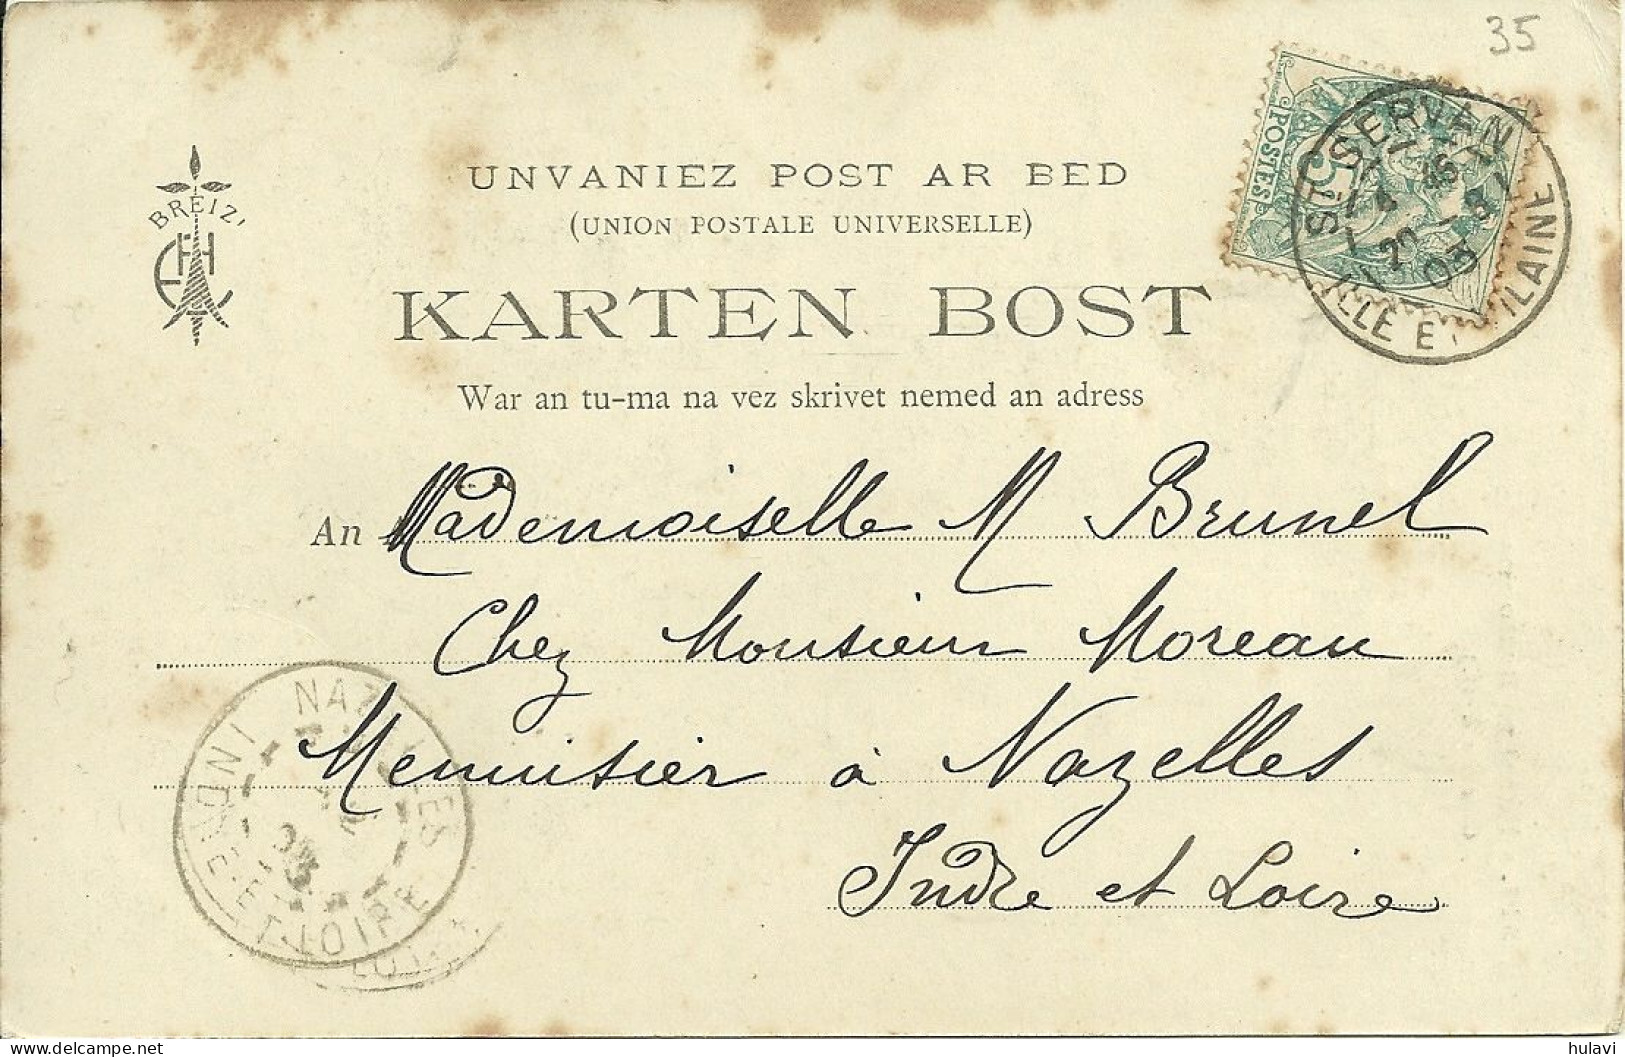 35
UNVANIEZ POST AR BED
(UNION POSTALE UNIVERSELLE)
BREIZ'
POSTES
5
ST SERVAN
ILLE ET VILAINE
KARTEN BOST
War an tu-ma na vez skrivet nemed an adress
An Mademoiselle M Brunel
Chez Monsieur Moreau
Menuisier à Nazelles
Indre et Loire
NAZELLES
INDRE-ET-LOIRE
hulavi